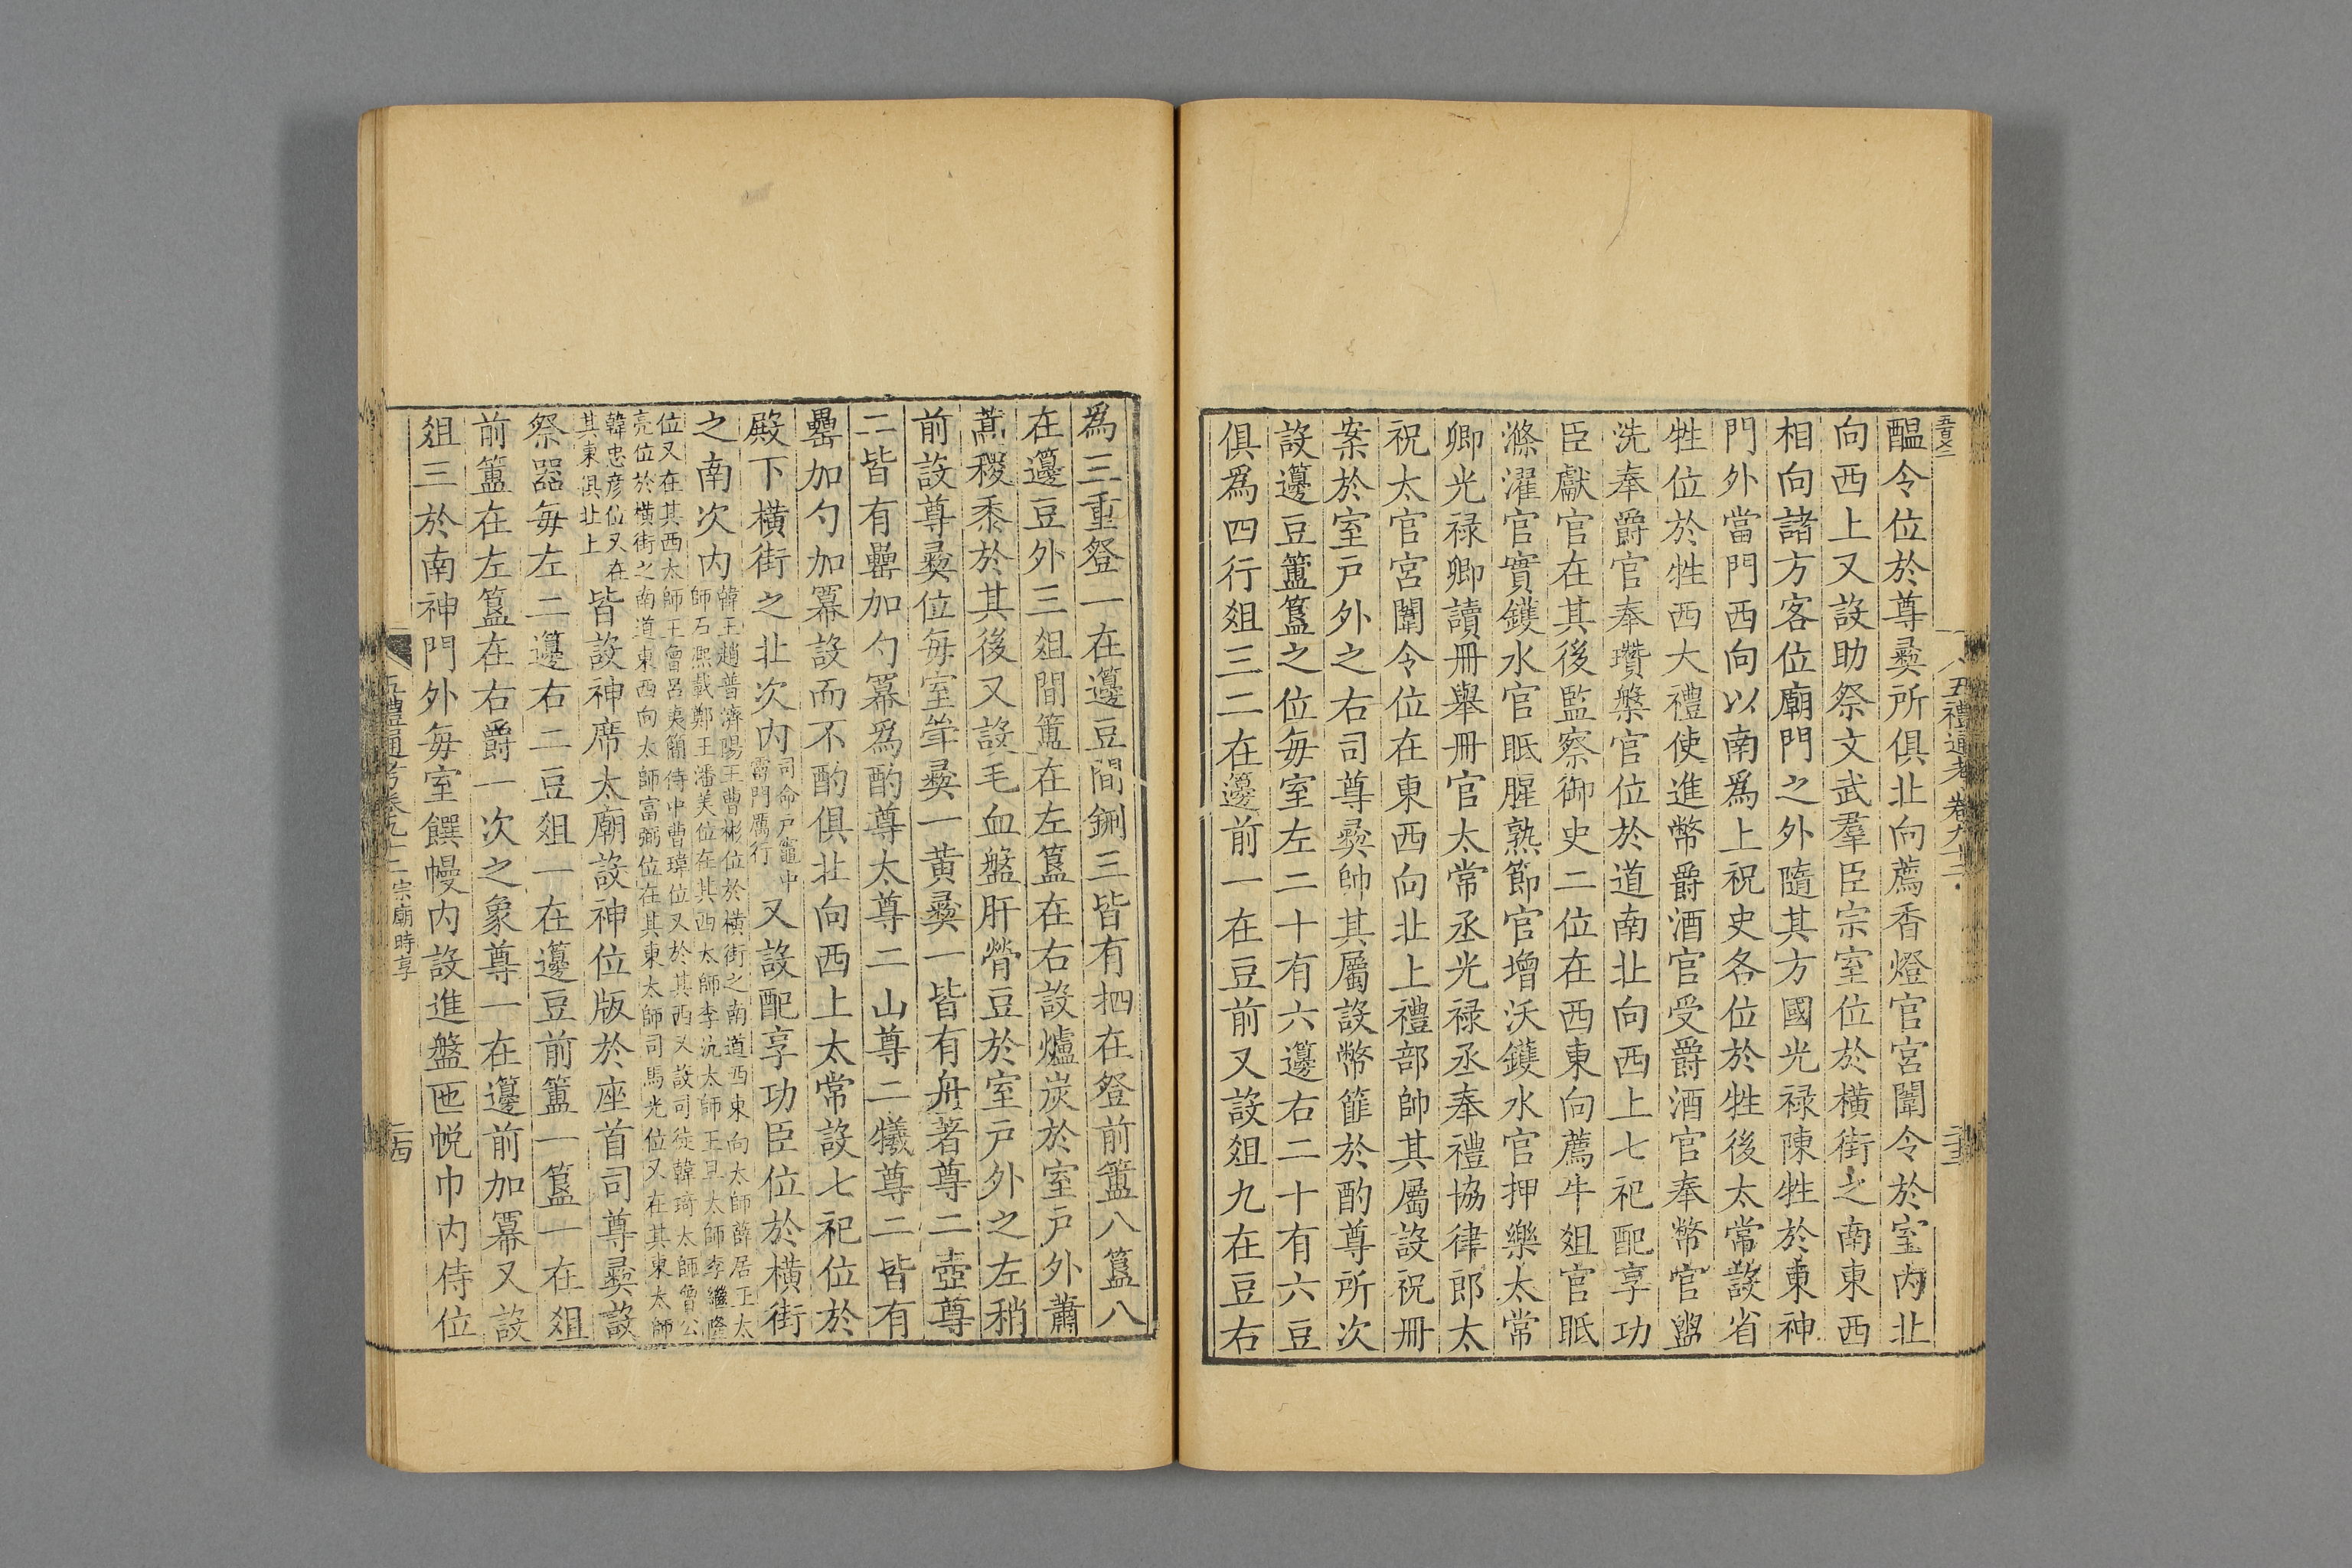 五禮通考卷九十二
醖令位於尊彛所俱北向薦香燈官宮闈令於室内北
向西上又設助祭文武羣臣宗室位於橫街之南東西
相向諸方客位廟門之外隨其方國光禄陳牲於東神
門外當門西向以南爲上祝史各位於牲後太常設省
牲位於牲西大禮使進幣爵酒官受爵酒官奉幣官盥
洗奉爵官奉瓚槃官位於道南北向西上七祀配享功
臣獻官在其後監察御史二位在西東向薦牛俎官眡
滌濯官實鑊水官眡腥熟節官增沃鑊水官押樂太常
卿光禄卿讀冊舉冊官太常丞光禄丞奉禮協律郎太
祝太官宮闈令位在東西向北上禮部帥其屬設祝冊
案於室戸外之右司尊彛帥其屬設幣篚於酌尊所次
設籩豆簠簋之位每室左二十有六籩右二十有六豆
俱爲四行俎三二在籩前一在豆前又設俎九在豆右
爲三重登一在籩豆間鉶三皆有柶在登前簠八簋八
在籩豆外三俎間簠在左簋在右設爐炭於室戸外蕭
蒿稷黍於其後又設毛血盤肝膋豆於室戸外之左稍
前設尊彛位每室斝彛一黄彛一皆有舟著尊二壺尊
二皆有罍加勺羃爲酌尊太尊二山尊二犧尊二皆有
罍加勺加羃設而不酌俱北向西上太常設七祀位於
殿下橫街之北次内司命戸竈中霤門厲行又設配享功臣位於橫街
之南次内韓王趙普濟陽王曹彬位於橫街之南道西東向太師薛居正太師石熙載鄭王潘美位在其西太師李沆太師王旦太師李繼隆
位又在其西太師王曾呂夷簡侍中曹瑋位又於其西又設司徒韓琦太師曾公亮位於橫街之南道東西向太師富弼位在其東太師司馬光位又在其東太師
韓忠彦位又在其東俱北上皆設神席太廟設神位版於座首司尊彛設
祭器每左二籩右二豆俎一在籩豆前簠一簋一在俎
前簠在左簋在右爵一次之象尊一在籩前加羃又設
俎三於南神門外每室饌幔内設進盤匜帨巾内侍位
五禮通考卷九十二 宗廟時享
二十四